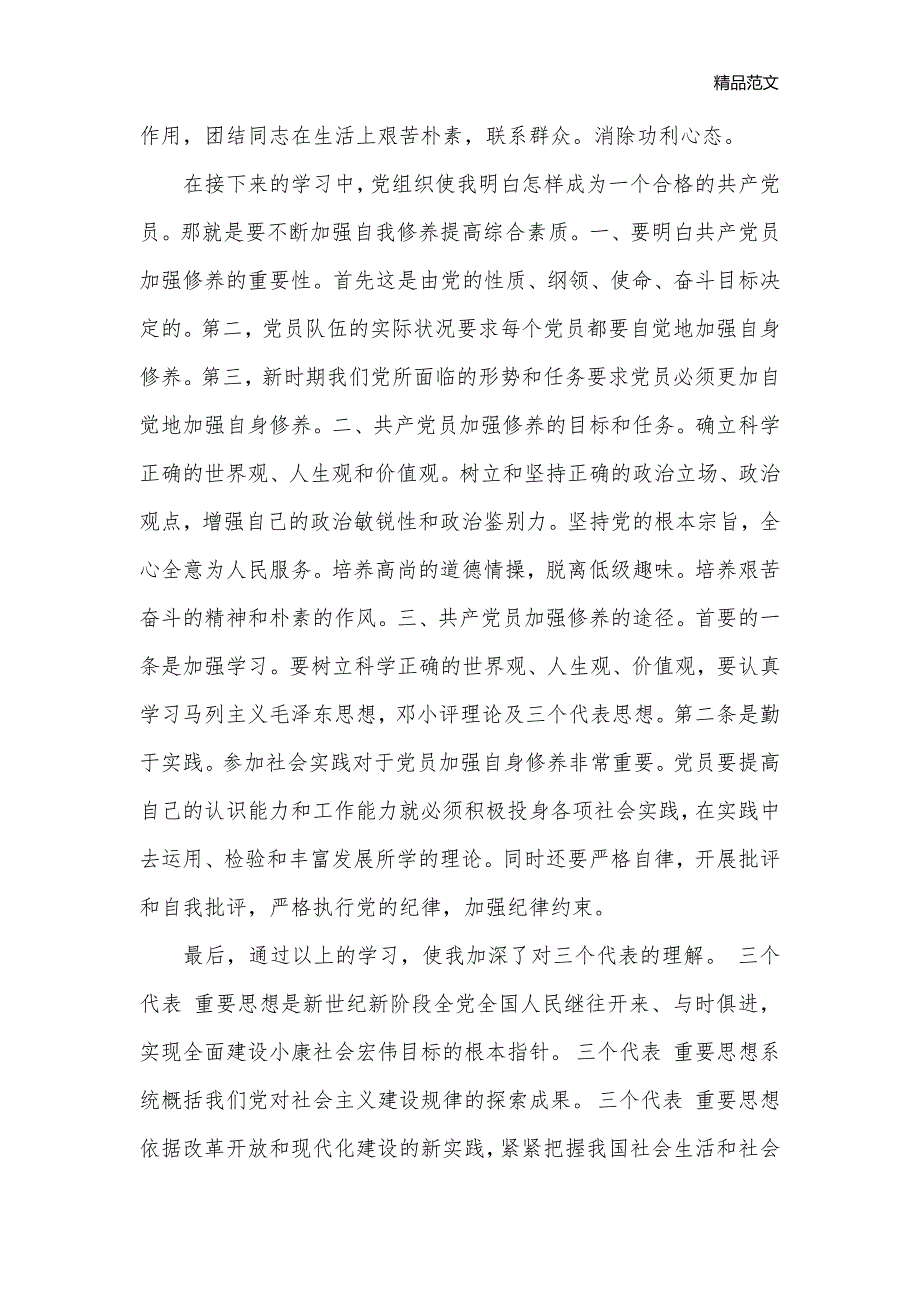 精品范文
作用，团结同志在生活上艰苦朴素，联系群众。消除功利心态。
在接下来的学习中，党组织使我明白怎样成为一个合格的共产党
员。那就是要不断加强自我修养提高综合素质。一、要明白共产党员
加强修养的重要性。首先这是由党的性质、纲领、使命、奋斗目标决
定的。第二，党员队伍的实际状况要求每个党员都要自觉地加强自身
修养。第三，新时期我们党所面临的形势和任务要求党员必须更加自
觉地加强自身修养。二、共产党员加强修养的目标和任务。确立科学
正确的世界观、人生观和价值观。树立和坚持正确的政治立场、政治
观点，增强自己的政治敏锐性和政治鉴别力。坚持党的根本宗旨，全
心全意为人民服务。培养高尚的道德情操，脱离低级趣味。培养艰苦
奋斗的精神和朴素的作风。三、共产党员加强修养的途径。首要的一
条是加强学习。要树立科学正确的世界观、人生观、价值观，要认真
学习马列主义毛泽东思想，邓小评理论及三个代表思想。第二条是勤
于实践。参加社会实践对于党员加强自身修养非常重要。党员要提高
自己的认识能力和工作能力就必须积极投身各项社会实践，在实践中
去运用、检验和丰富发展所学的理论。同时还要严格自律，开展批评
和自我批评，严格执行党的纪律，加强纪律约束。
最后，通过以上的学习，使我加深了对三个代表的理解。 三个
代表 重要思想是新世纪新阶段全党全国人民继往开来、与时俱进，
实现全面建设小康社会宏伟目标的根本指针。 三个代表 重要思想系
统概括我们党对社会主义建设规律的探索成果。 三个代表 重要思想
依据改革开放和现代化建设的新实践，紧紧把握我国社会生活和社会